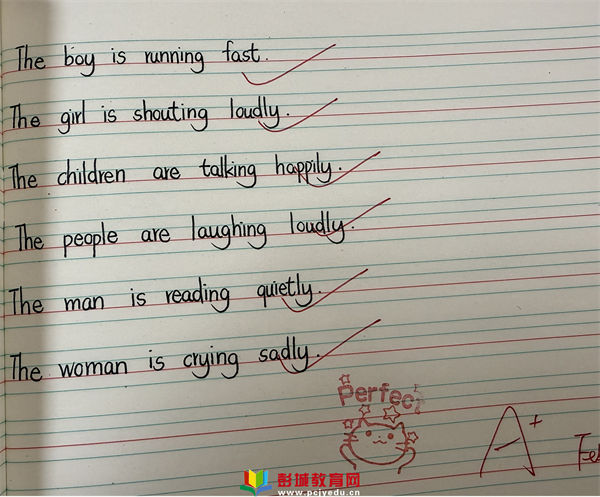 The boy is running fast.
The girl is shouting loudly.
The children are talking happily.
The people are laughing loudly.
The man is reading quietly.
The woman is crying sadly.
Perfect
A+
彭城教育网
www.pcjyedu.cn